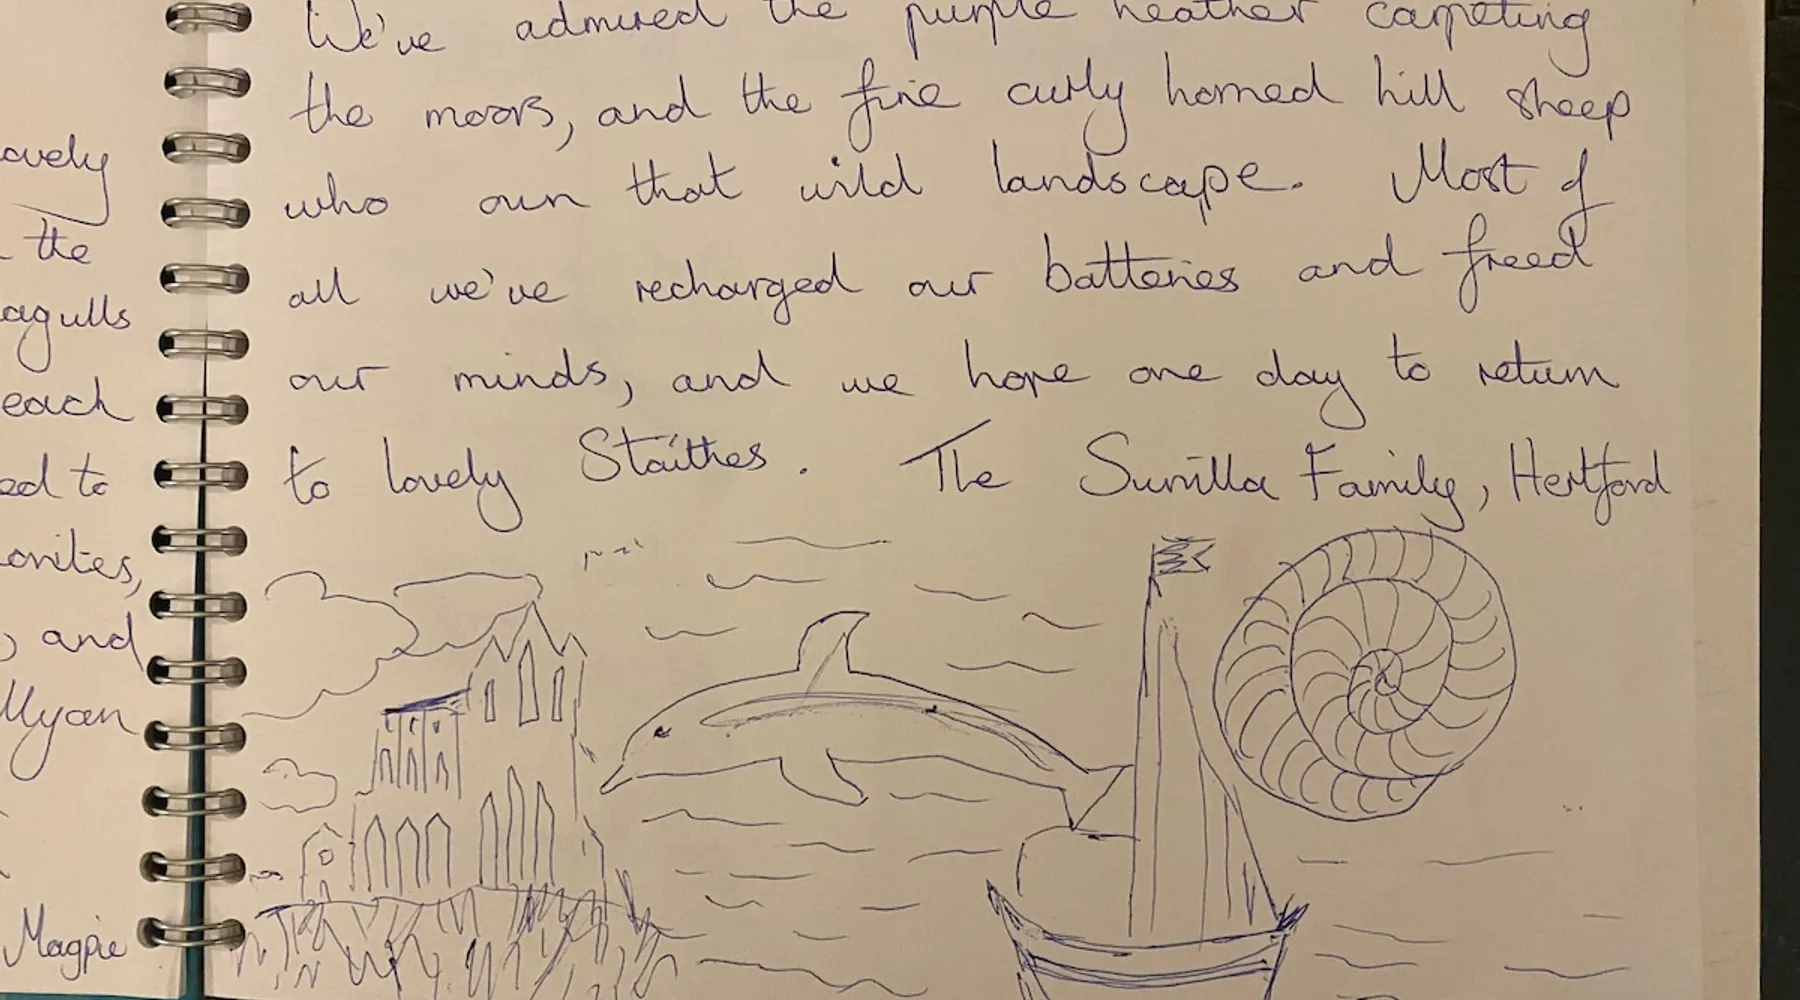 avely
the
agulls
each
ed to
onites,
, and
llyan
Magpie
We've admired the purple heather carpeting
the moors, and the fine curly horned hill sheep
who own that wild landscape. Most of
all we've recharged our batteries and freed
our minds, and we hope one day to return
to lovely Staithes. The Family, Hertford